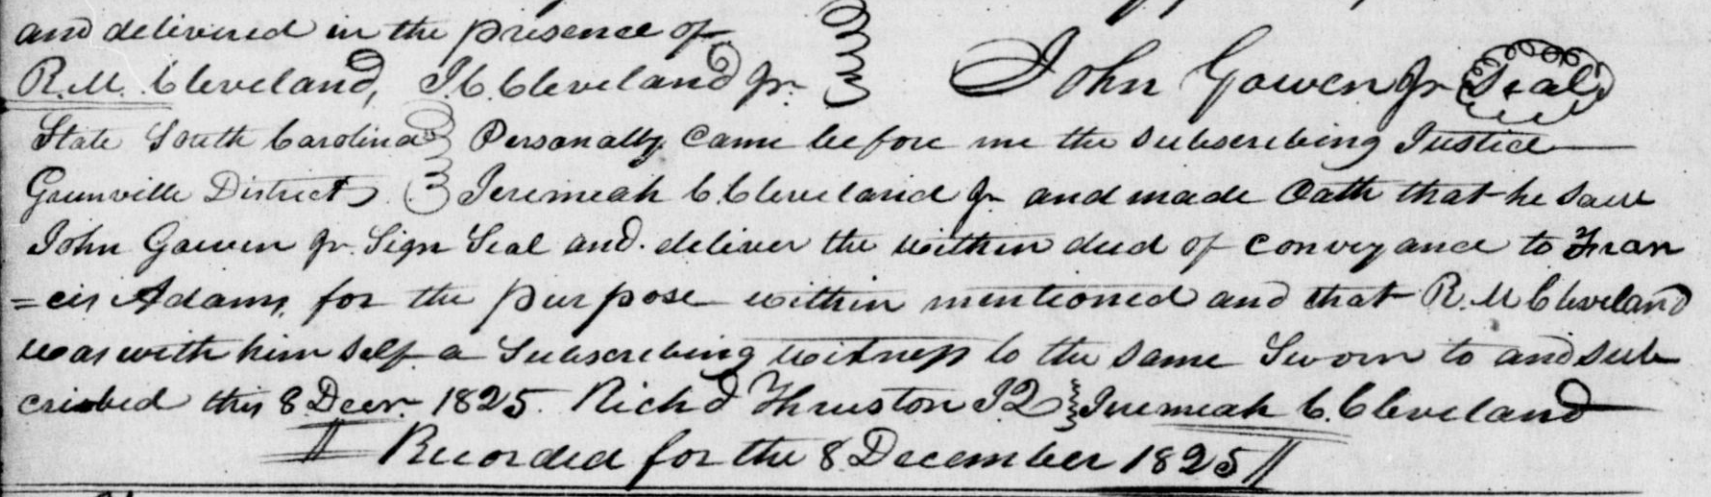 and delivered in the presence of
R. M. Cleveland, J. C. Cleveland Jr. John Gowen Jr Seal
State South Carolina Personally Came before me the subscribing Justice
Greenville District Jeremeah C. Cleveland Jr and made Oath that he saw
John Gowen Jr. Sign Seal and deliver the within deed of conveyance to Fran
=cis Adams, for the purpose within mentioned and that R. M Cleveland
was with him self a Subscribing witness to the same Sworn to and sub
cribed this 8 Decr. 1825. Richd Thruston J Q Jeremeah C. Cleveland
Recorded for the 8 December 1825